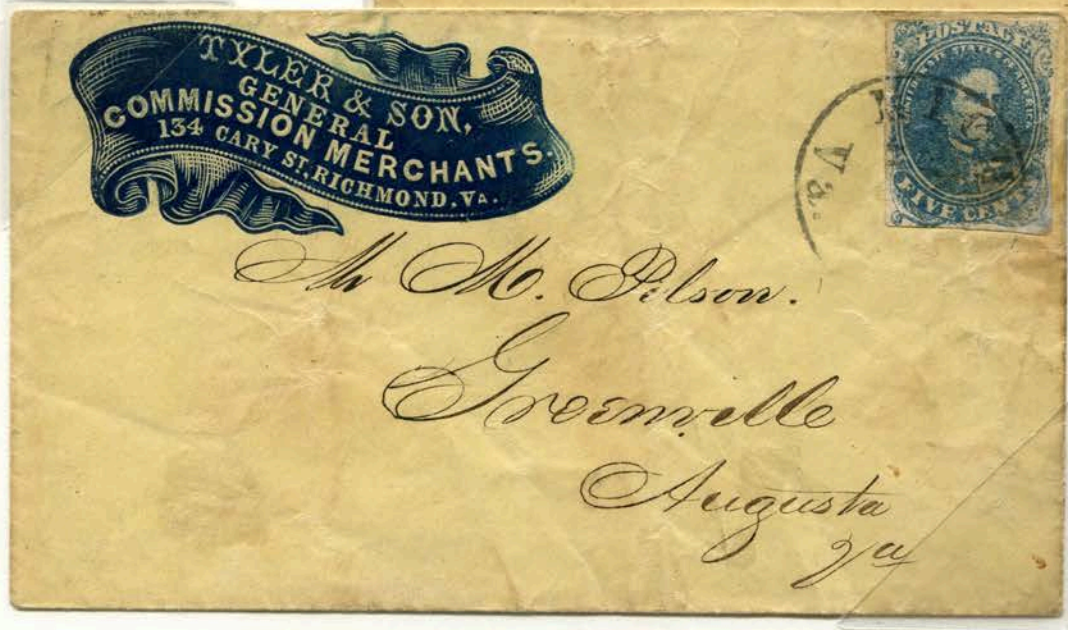 TYLER & SON,
GENERAL
COMMISSION MERCHANTS.
134 CARY ST, RICHMOND. VA.
POSTAGE
FIVE CENTS
VA.
Mr M. Pilson.
Greenville
Augusta
Va